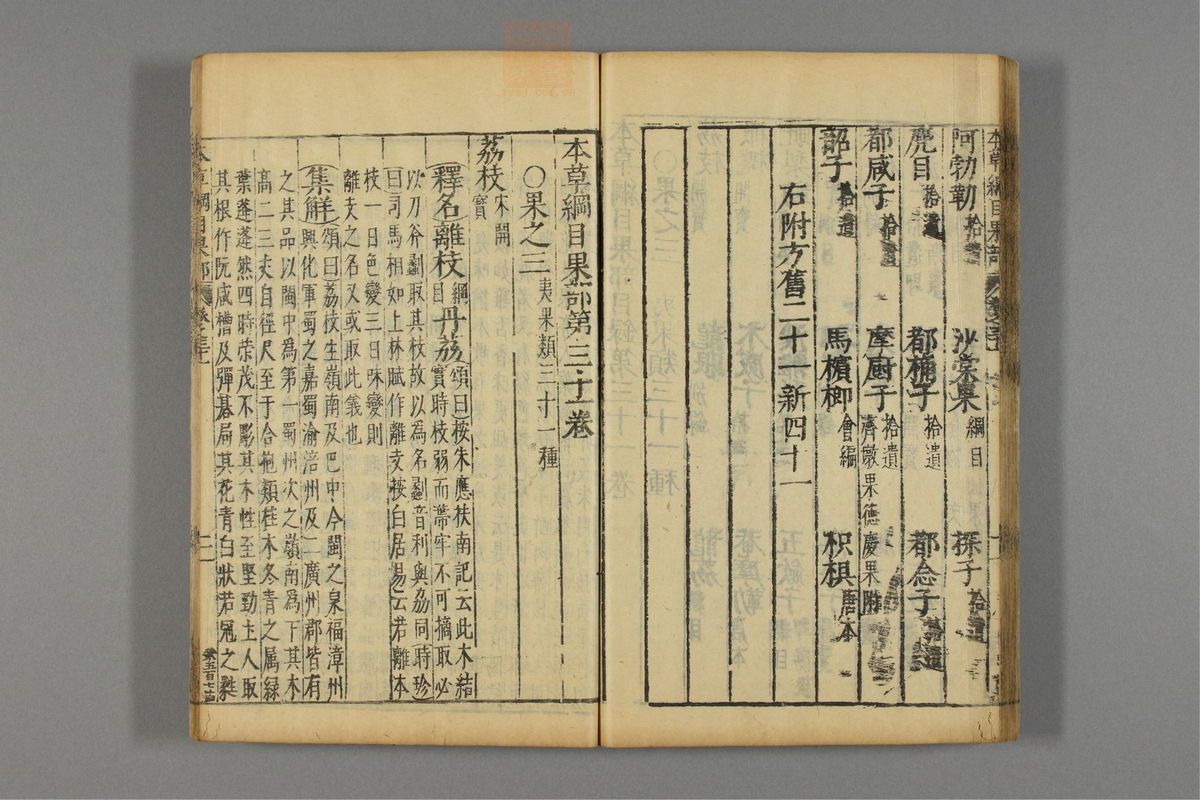 阿勃勒拾遺 沙棠果綱目 探子拾遺
麂目拾遺 都桷子拾遺 都念子拾遺
都咸子拾遺 摩厨子拾遺齊墩果德慶果附
韶子拾遺 馬檳榔會編 枳椇唐本
右附方舊二十一新四十一
本草綱目果部第三十一卷
○果之三夷果類三十一種
荔枝宋開寶
釋名離枝綱目丹荔頌曰按朱應扶南記云此木結
實時枝弱而蔕牢不可摘取必
以刀斧劙取其枝故以為名劙音利與荔同時珍
曰司馬相如上林賦作離支按白居易云若離本
枝一日色變三日味變則
離支之名又或取此義也
集解頌曰荔枝生嶺南及巴中今閩之泉福漳州
興化軍蜀之嘉蜀渝涪州及二廣州郡皆有
之其品以閩中為第一蜀州次之嶺南為下其木
高二三丈自徑尺至于合抱類桂木冬青之屬緑
葉蓬蓬然四時荣茂不彫其木性至堅勁土人取
其根作阮咸槽及彈碁局其花青白狀若冠之蕤